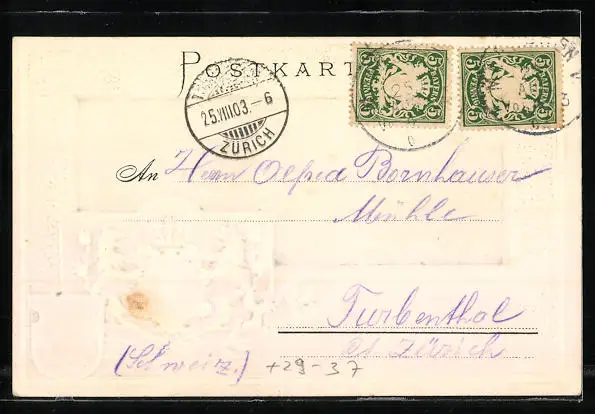 POSTKART
25.VIII.03.-6
ZÜRICH
An Herrn Alfred Bornhauser
Mühle
Turbenthal
Ct Zürich
(Schweiz.) +29-37